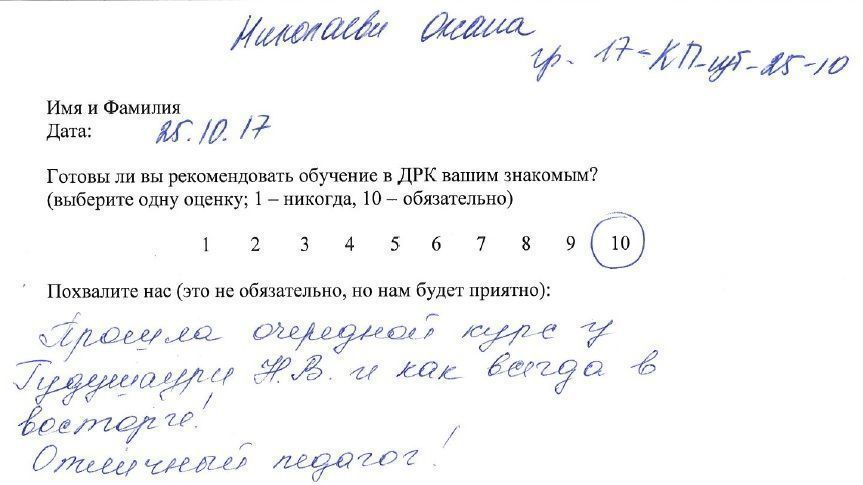 Николаеви Оксана
гр. 17-КП-цт-25-10
Имя и Фамилия
Дата: 25.10.17
Готовы ли вы рекомендовать обучение в ДРК вашим знакомым?
(выберите одну оценку; 1 – никогда, 10 – обязательно)
1 2 3 4 5 6 7 8 9 10
Похвалите нас (это не обязательно, но нам будет приятно):
Прошла очередной курс у
Гудушаури Н.В. и как всегда в
восторге!
Отличный педагог!